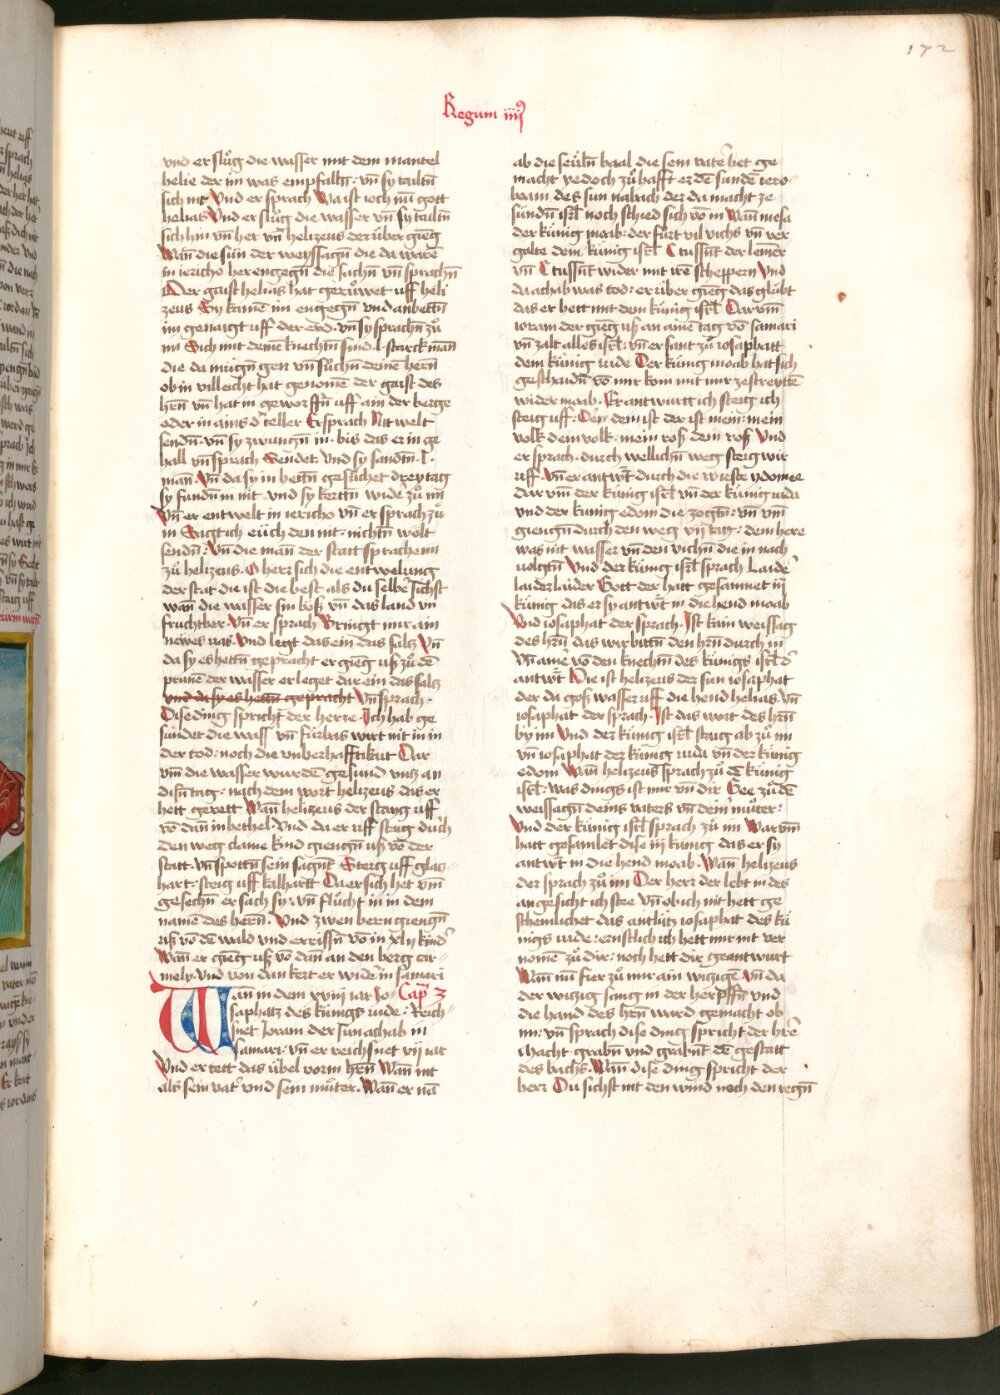 172
Regum iiij
vnd er slůg die wasser mit dem mantel
helie der im was empfalln̄ : vn̄ sy tailtn̄
sich nit Vnd er sprach Wa ist ioch nŭ gott
helias Vnd er slůg die wasser vn̄ sy tailtn̄
sich hin vn̄ her vn̄ helizeus der über gieng
Wan̄ die sün der weyssagn̄ die da warē
in iericho her engegn̄ die sachn̄ vn̄ sprachn̄
Der gaist helias hat gerůwet uff heli
zeus Sy kamē im engegn̄ vnd anbettn̄
in genaigt uff der erd · vn̄ sy sprachn̄ zů
im Sich mit deinē knechtn̄ sind · l · starck man
die da mügn̄ gen vn̄ sůchn̄ deinē herrn̄
ob in villeicht hat genomē der gaist des
hrn̄ vn̄ hat in geworffn̄ uff ain der berge
oder in ains d' teller Er sprach Nit welt
sendn̄ · vn̄ sy zwungn̄ in · bis das er in ge
hall vn̄ sprach Sendet · Vnd sy sandtn̄ · l ·
man · Vn̄ da sy in hettn̄ gesůchet drey tag
sy fundn̄ in nit · vnd sy kertn̄ wider zů im
Vn̄ er entwelt in iericho vn̄ er sprach zů
in Sagt ich eüch den nit : nichtn̄ wölt
sendn̄ : Vn̄ die man der statt sprachen im
zů helizeus · O herr sich die entwelung
der stat die ist die best als du selber sichst
wan̄ die wasser sin böß vn̄ das land vn
fruchtber · Vn̄ er sprach Bringt mir ain
newes vas · Vnd legt das ein das saltz Vn̄
da sy es hettn̄ gepracht er gieng uß zů dē
prunē der wasser er leget dar ein das saltz
vnd da sy es hettn̄ gepracht Vn̄ sprach ·
Dise ding spricht der herre · Ich hab ge
sundet die wasser vn̄ fürbas wirt nit in in
der tod : noch die vnberhafftikait Dar
vm̄ die wasser wurdē gesund vntz an
disn̄ tag · nach dem wort helizeus das er
hett gerett Wan̄ helizeus der staig uff
vō dan̄ in bethel · Vnd da er uff staig durch
den weg claine kind giengn̄ uß vō der
statt · vn̄ spottn̄ sein sagnt Steig uff glatz
hart : steig uff kalhartt Da er sich het vm̄
gesechn̄ er sach sy : vn̄ flůcht in in dem
namē des herrn̄ · Vnd zwen bern giengn̄
uß vō dē wald vnd errissn̄ vō in xlij kind'
Wan̄ er gieng uß vō dan̄ an den berg car
mely · Vnd von dan kert er wider in samari
Wan in dem xviij iar Jo= Cap̄ 3
saphatz des künigs iude : Reich=
snet Joram der sun achab in
samari : vn̄ er reichsnet xij iar
Vnd er tett das übel vorm hrn̄ Wan̄ nit
als sein vat' vnd sein můter · Wan̄ er nā
ab die seüln̄ baal die sein vater het ge
macht yedoch zů hafft er dē sundē iero=
boam des sun nabath der da macht ze
sundn̄ isrl̄ noch schied sich vō in Wan̄ mesa
der künig moab : der fůrt vil vichs vn̄ ver
galte dem künig isrl̄ C tussn̄t der lemer
vn̄ C tussn̄t wider mit irē scheppern Vnd
da achab was tod : er über gieng das glübt
das er hett mit dem künig isrl̄ Darvm̄
ioram der gieng uß an amē tag vō samari
vn̄ zalt alles isrl̄ : vn̄ er sant zů iosaphatt
dem künig iude Der künig moab hat sich
geschaidn̄ vō mir kom mit mir ze streyttē
wider moab · Er antwurt ich steig ich
steig uff : Der dein ist der ist mein : mein
volk dein volk · mein roß dein roß Vnd
er sprach · durch wellichn̄ weg steig wir
uff · Vn̄ er antwrt̄ durch die wieste ydomee
dar vm̄ der künig isrl̄ vn̄ der künig iuda
vnd der künig edom die zogtn̄ : vn̄ vm̄
giengn̄ durch den weg vij tag : dem here
was nit wasser vn̄ den vichn̄ die in nach
uolgtn̄ Vnd der künig isrl̄ sprach Laider
laider laider Gott der hatt gesamnet iij
künig das er sy antwrt̄ in die hend moab
Vnd iosaphat der sprach · Ist kain weissag
des hrn̄ das wir bittn̄ den hrn̄ durch in
Vn̄ ainē vō den knechtn̄ des künigs isrl̄ d'
antwrt̄ Hie ist helizeus der sun iosaphat
der da goß wasser uff die hend helias · Vn̄
iosaphat der sprach · Ist das wort des hrn̄
by im Vnd der künig isrl̄ staig ab zů im
vn̄ iosaphat der künig iuda vn̄ der künig
edom Wan̄ helizeus sprach zů dē künig
isrl̄ · was dings ist mir vn̄ dir Gee zů dē
weissagn̄ deins vaters vn̄ deiner můter :
Vnd der künig isrl̄ sprach zů im Warvm̄
hatt gesamlet dise iij künig das er sy
antwrt̄ in die hend moab · Wan̄ helizeus
der sprach zů im Der herr der lebt in des
angesicht ich stee vn̄ ob ich nit hett ge
schemlichet das antlütz iosaphat des kü
nigs iude : ernstlich ich hett mir nit ver
nomē zů dir : noch hett dir geantwurt
Wan̄ nū fier zů mir ain witzigē vn̄ da
der witzig sang in der herpffn̄ vnd
die hand des hrn̄ ward gemacht ob
im : vn̄ sprach dise ding spricht der hrē
Macht grabn̄ vnd grabnt dē gestatt
des bachs · Wan̄ dise ding spricht der
herr Du sichst nit den wind noch den regn̄